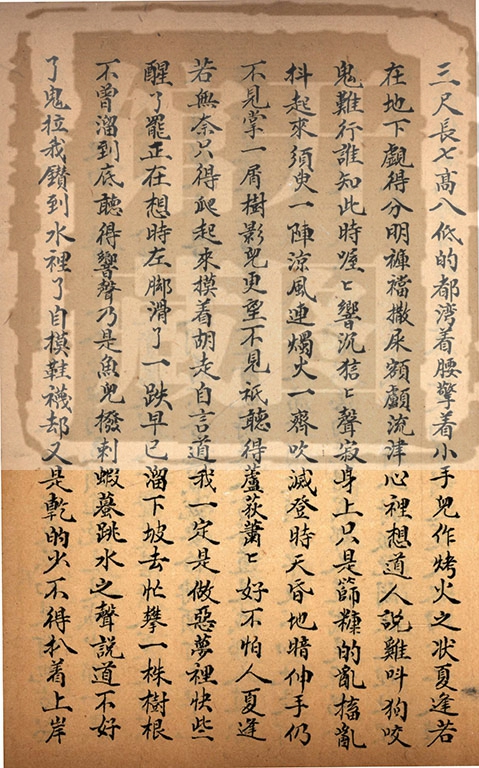 三尺長七高八低的都湾着腰擎着小手児作烤火之状夏逢若
在地下觑得分明褲襠撒尿額顱流津心裡想道人說雞叫狗咬
鬼難行誰知此時喔ヒ響沉狺ヒ聲寂身上只是篩糠的亂搐亂
抖起來須臾一陣涼風連燭火一齊吹滅登時天昏地暗伸手仍
不見掌一屑樹影児更望不見祇聽得蘆荻蕭ヒ好不怕人夏逢
若無奈只得爬起來摸着胡走自言道我一定是做惡夢裡快些
醒了罷正在想時左脚滑了一跌早已溜下坡去忙攀一株樹根
不曾溜到底聽得響聲乃是魚児撥刺蝦蟇跳水之聲說道不好
了鬼拉我鑽到水裡了自摸鞋襪却又是乾的少不得扒着上岸